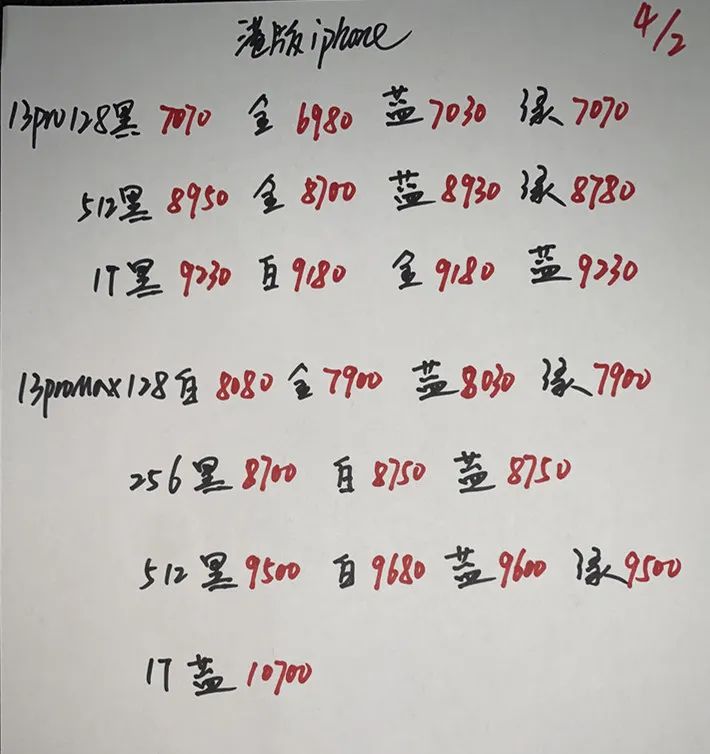 港版iphone 4/2
13pro128黑 7070 金 6980 蓝 7030 绿 7070
512黑 8950 金 8700 蓝 8930 绿 8780
1T黑 9230 白 9180 金 9180 蓝 9230
13promax128白 8080 金 7900 蓝 8030 绿 7900
256黑 8700 白 8750 蓝 8750
512黑 9500 白 9680 蓝 9600 绿 9500
1T蓝 10700